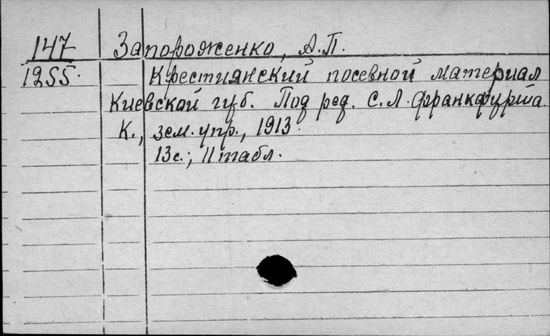 147 Запороженко, А.П.
1255. Крестиянский посевной материал
Киевской губ. Под ред. С.Л. Франкфурта.
К., зем. упр., 1913.
13с.; 11 табл.